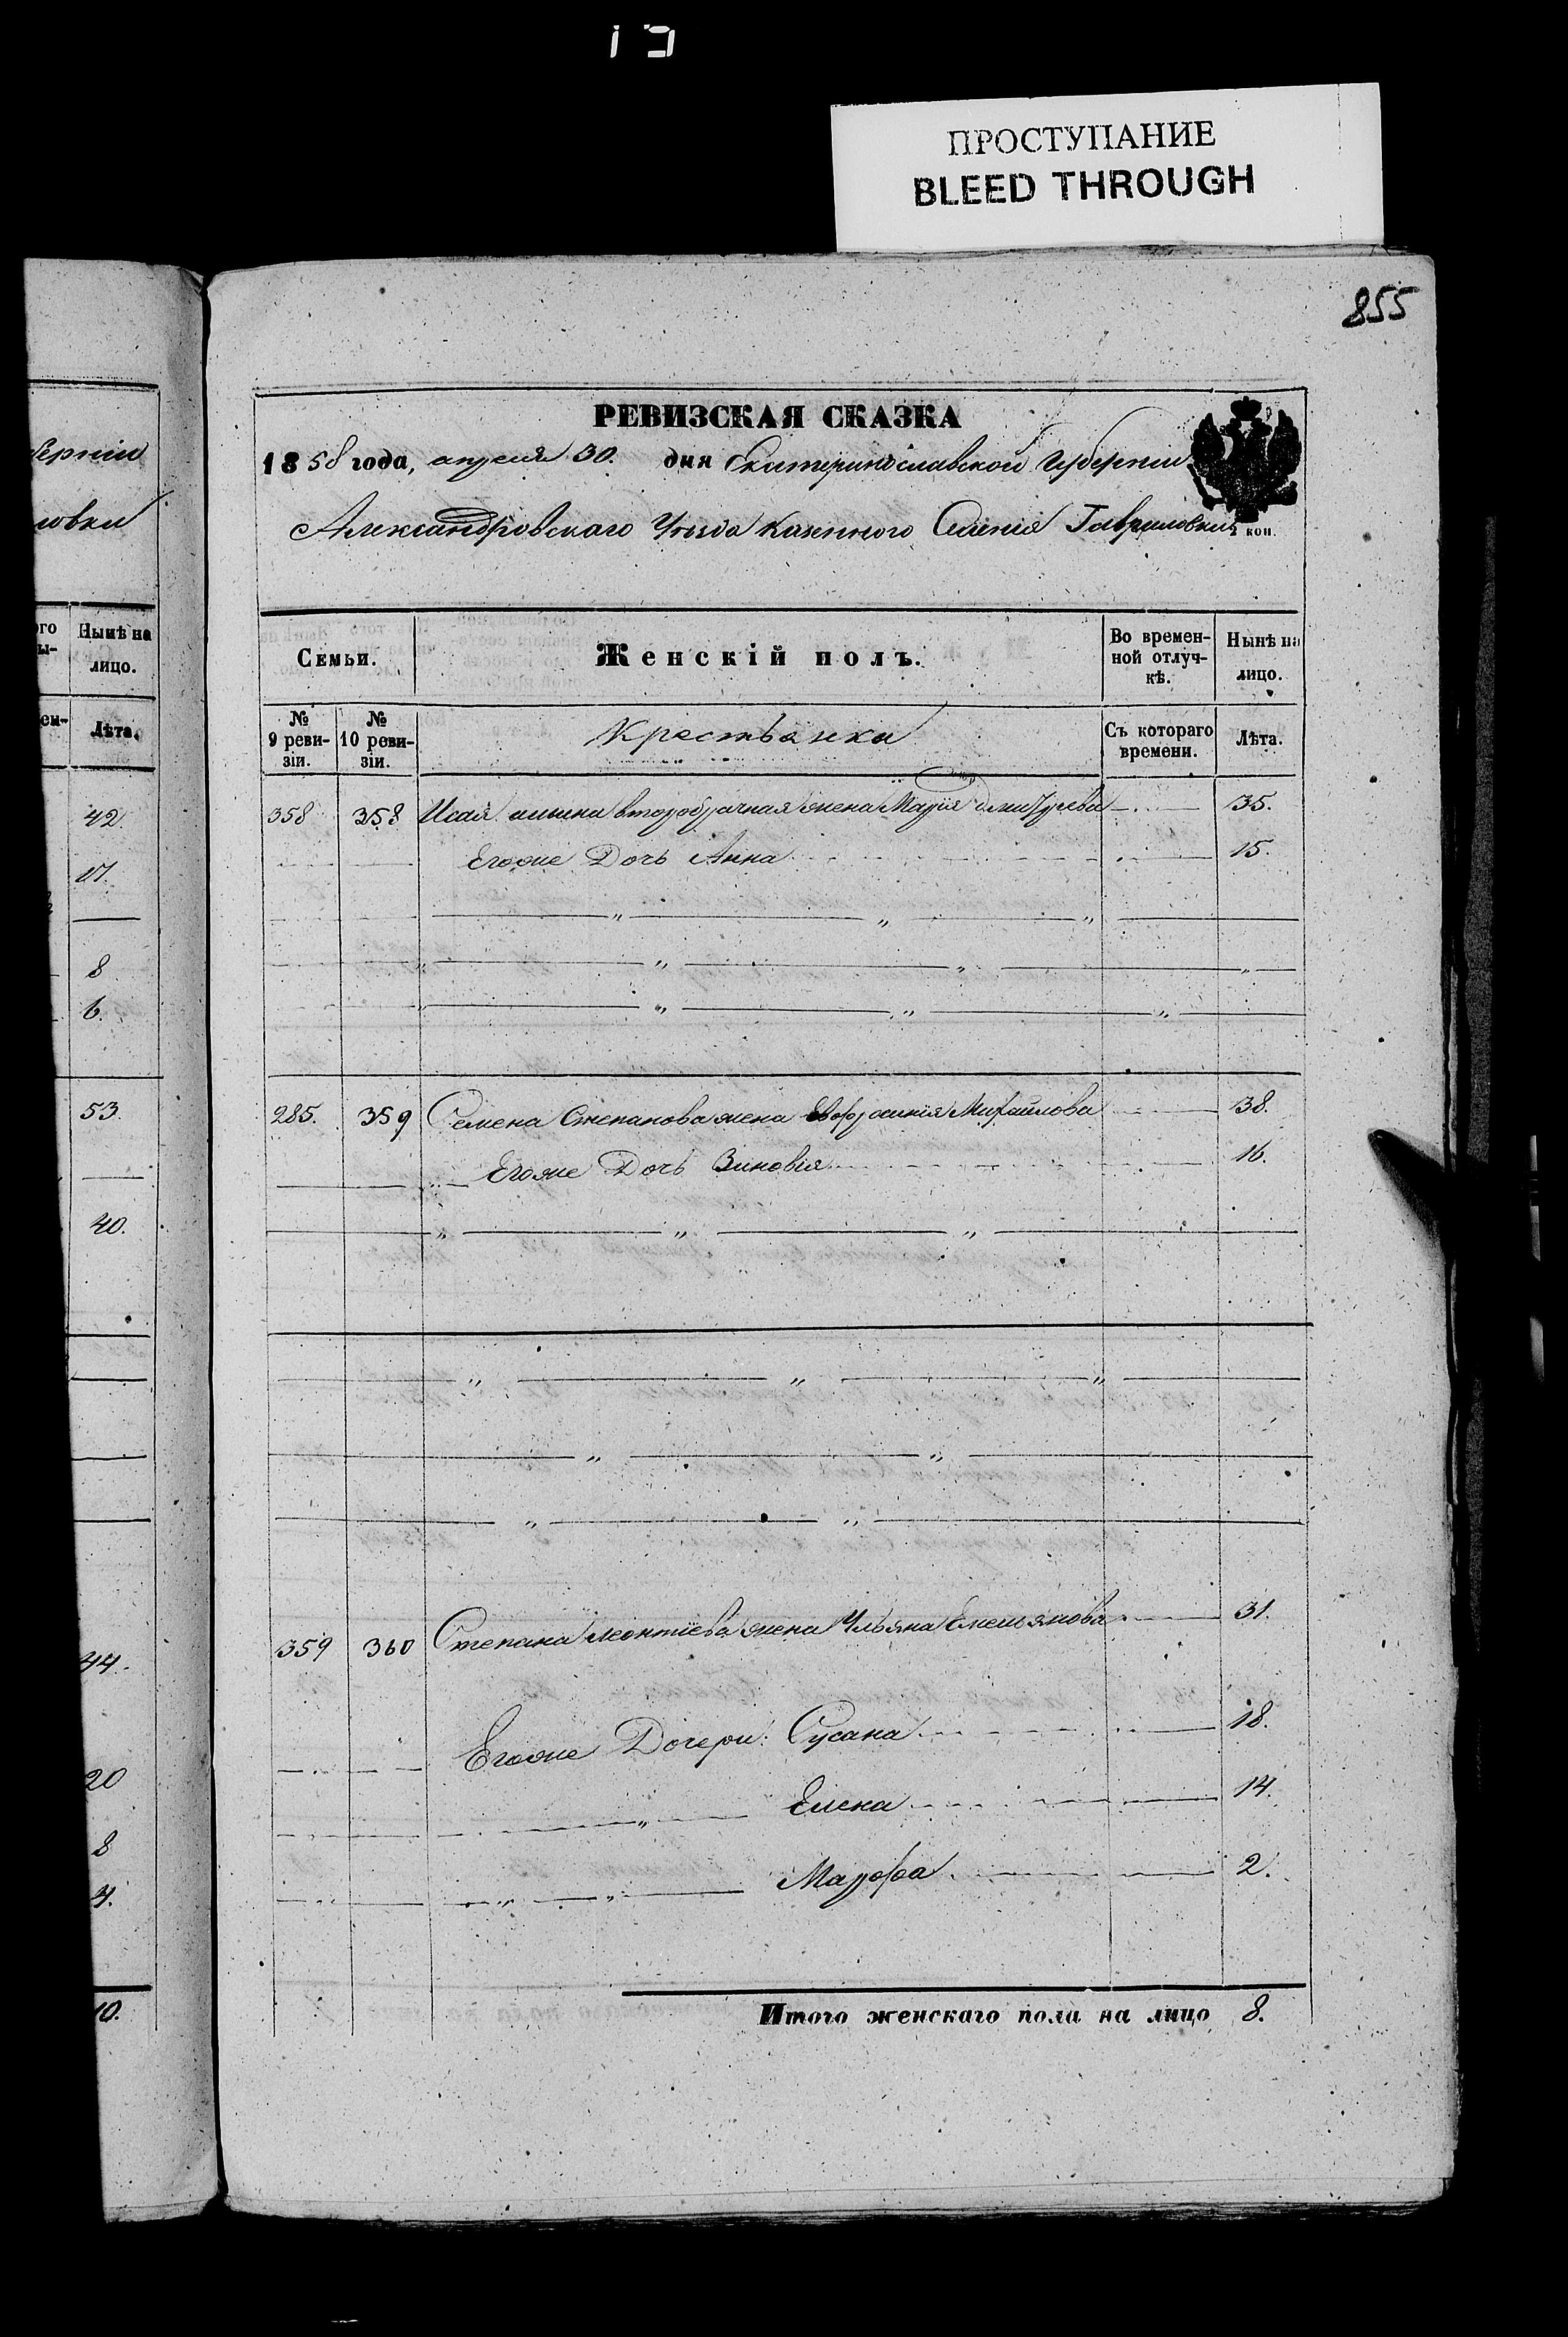 ПРОСТУПАНИЕ
BLEED THROUGH
855
РЕВИЗСКАЯ СКАЗКА
1858 года, апреля 30. дня Екатеринославской Губернiи
Александровскаго Уѣзда Казеннаго Селенiя Гавриловки
коп.
Семьи. Женскiй полъ. Во временной отлучкѣ. Нынѣ на лицо.
№ 9 ревизiи. № 10 ревизiи. Крестьянки Съ котораго времени. Лѣта.
358 358 второбрачная жена Марiя 35.
Егоже Дочь Анна 15.
285. 359 Семена Степанова жена Евфросинiя Михайлова 38.
Егоже Дочь Зиновiя 16.
359 360 Степана Леонтiева жена Ульяна Емельянова 31.
Егоже Дочери: Сусана 18.
Елена 14.
Марфа 2.
Итого женскаго пола на лицо 8.
вернiи
ловки
Нынѣ на лицо.
Лѣта.
42.
17.
8
6.
53.
40.
44.
20
8
4.
10.